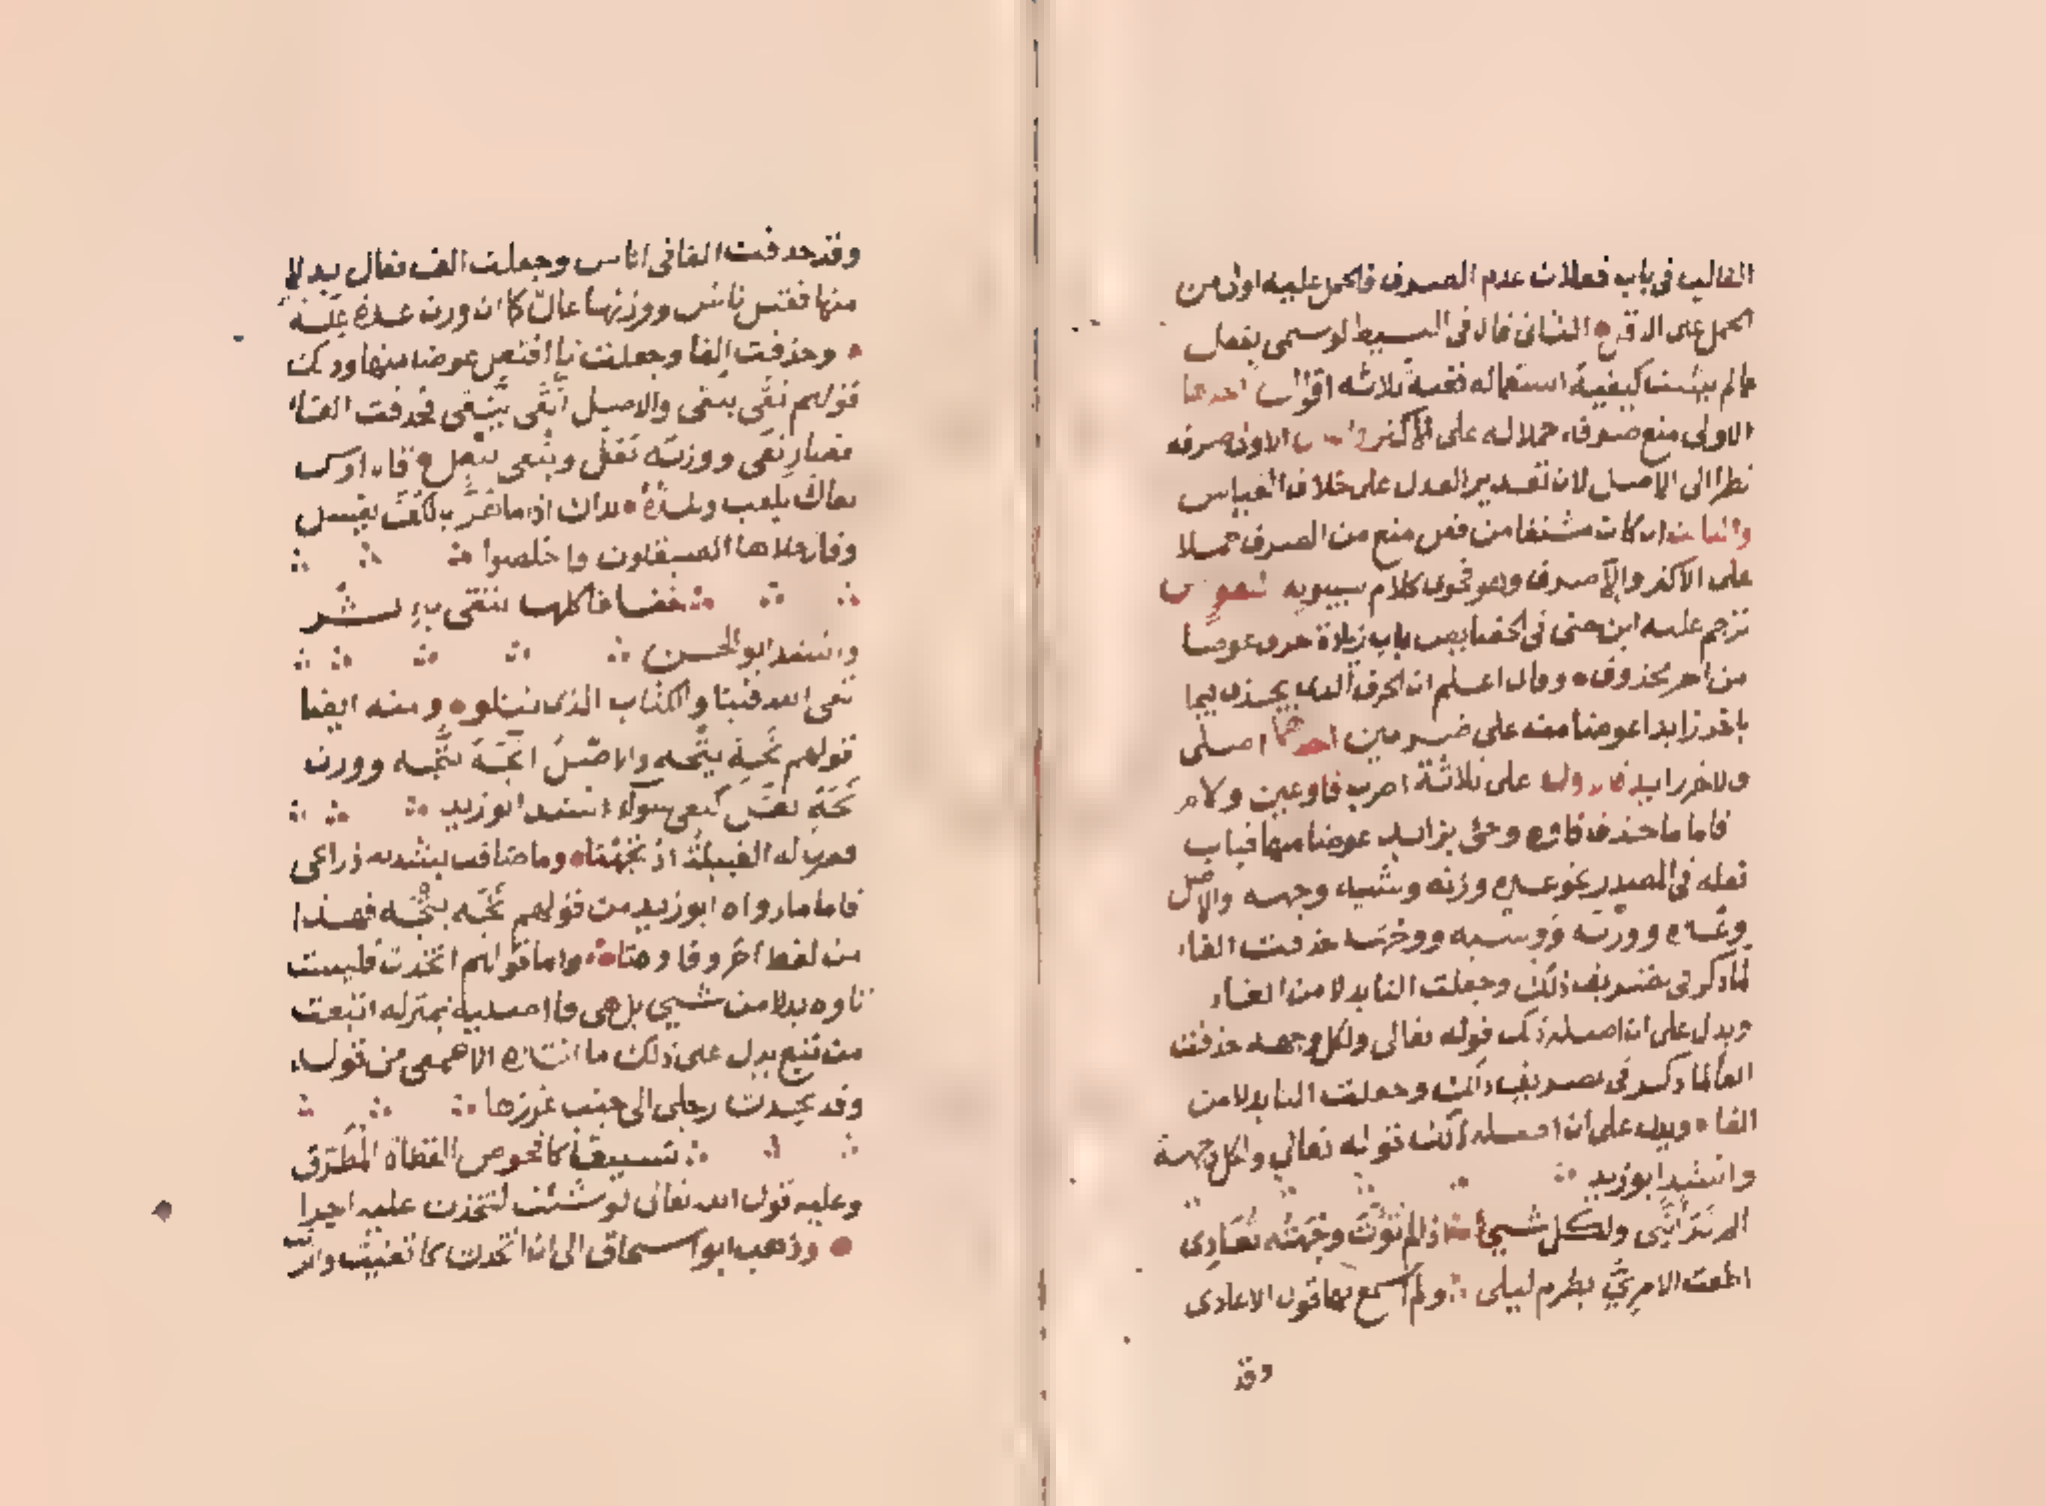 الغالب في باب فعلان عدم الصرف فالحمل عليه اولى من
الحمل على الاقل الثاني قال في البسيط لو سمى بفعل
مما لم يثبت كيفية استعماله ففيه ثلاثه اقوال احدها
الاولى منع صرفه حملا له على الاكثر الاولى صرفه
نظرا الى الاصل لان تقدير العدل على خلاف القياس
والثالث ان كان مشتقا من فعل منع من الصرف حملا
على الاكثر والا صرف وهو فحوى كلام سيبويه
ترجم عليه ابن جنى في الخصايص باب زيادة حرف عوضا
من اخر محذوف وقال اعلم ان الحرف الذي يحذف فيجا
باخر زايدا عوضا منه على ضربين احدهما اصلى
والاخر زايد فالاول على ثلاثة اضرب فا وعين ولام
فاما ما حذف فاوه وجئ بزايد عوضا منها فباب
فعله في المصدر نحو عده وزنه وشيه وجهه والاصل
وعده ووزنه ووشيه ووجهه حذفت الفاء
لما ذكر في تصريف ذلك وجعلت التا بدلا من الفاء
ويدل على ان اصله ذلك قوله تعالى ولكل وجهه حذفت
الفا لما ذكر في تصريف ذلك وجعلت التا بدلا من
الفا ويدل على ان اصله ذلك قوله تعالى ولكل وجهة
وانشد ابو زيد
الم تر انني ولكل شيئ اذا لم تؤت وجهته تعادى
اطعت الامري بصرم ليلى ولم اسمع بها قول الاعادى
وقد
وقد حذفت الفا في اناس وجعلت الف فعال بدلا
منها فقيل ناس ووزنها عال كما ان وزن عده علة
وحذفت الفا وجعلت تا افتعل عوضا منها وذلك
قولهم تقى يتقى والاصل اتقى يتقى فحذفت التاء
فصار تقى ووزنه تعل ويتقى يتعل قال اوس
تقاك بكعب ولذه يداك اذا ما هز بالكف يعسل
وقال جلاها الصيقلون فاخلصوا
خفافا كلها يتقى باثر
وانشد ابو الحسن
تقى الله فينا والكتاب الذي تتلو ومنه ايضا
قولهم تجه يتجه والاصل اتجه يتجه ووزن
تجه تعل كتقى سواء انشد ابو زيد
قصرت له القبيلة اذ تجهنا وما ضاقت بشده ذراعى
فاما ما رواه ابو زيد من قولهم تجه يتجه فهذا
من لفظ اخر وفاوه تاء واما قولهم اتخذت فليست
تاوه بدلا من شيي بل هي فا اصليه بمنزله اتبعت
من تبع يدل على ذلك ما انشده الاصمعى من قوله
وقد تخذت رجلى الى جنب غرزها
نسيفا كافحوص القطاة المطرق
وعليه قول الله تعالى لو شئت لتخذت عليه اجرا
وذهب ابو اسحاق الى ان اتخذت كاتقيت واتز